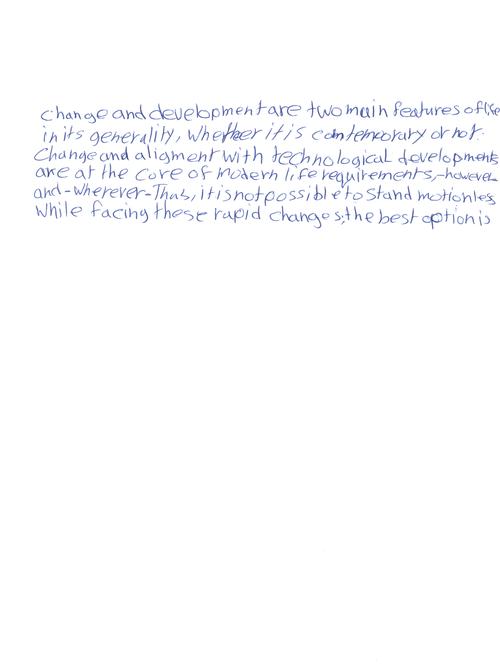 Change and development are two main features of life
in its generality, whether it is contemporary or not.
Change and aligment with technological developments
are at the core of modern life requirements, -however-
and -wherever- Thus, it is not possible to stand motionless
while facing these rapid changes; the best option is